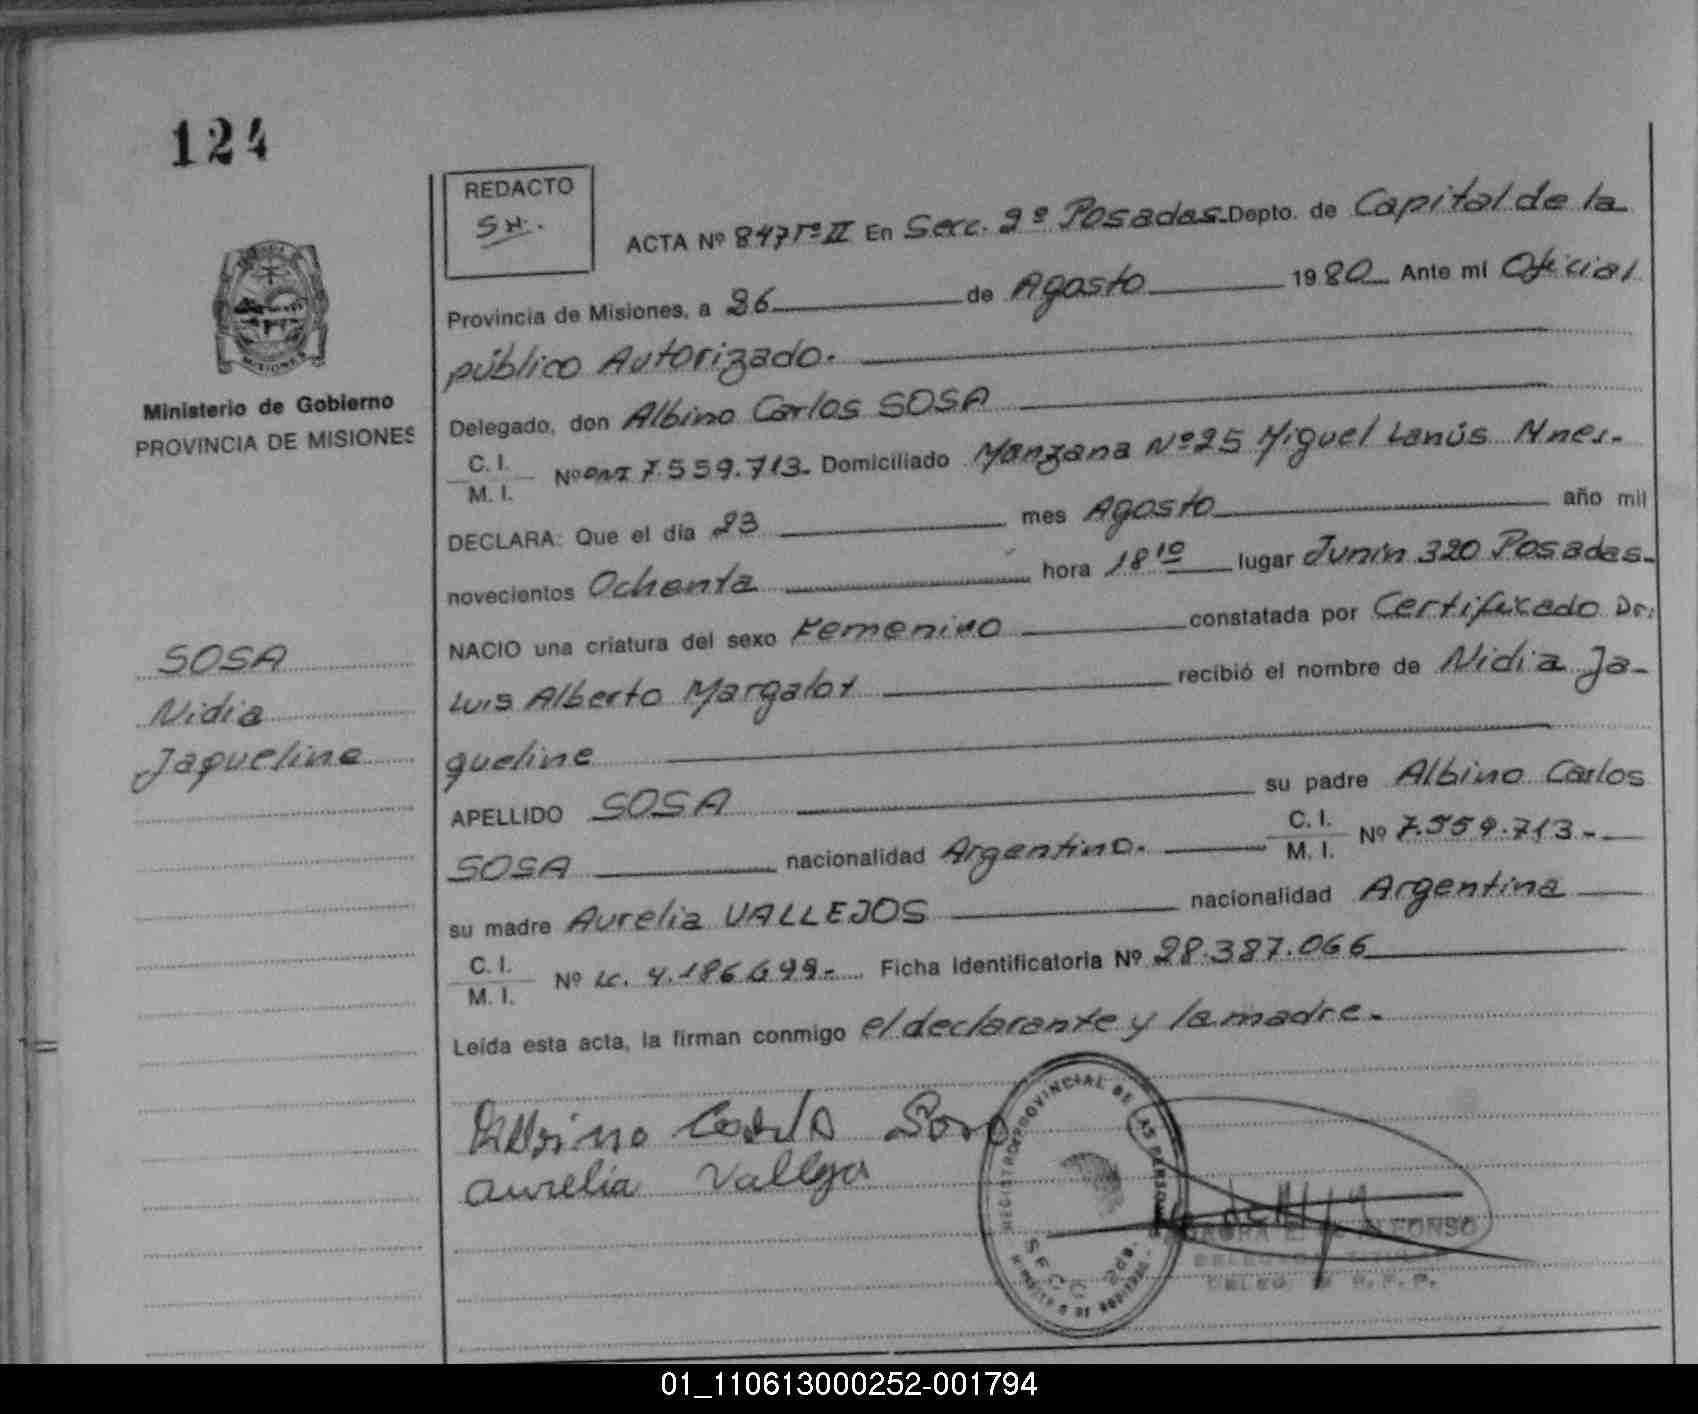 124
REDACTO
SH.
ACTA Nº 847 Tº II En Secc. 2º Posadas. Depto. de Capital de la
Provincia de Misiones, a 26 de Agosto 1980 Ante mí Oficial
público Autorizado.
MISIONES
Ministerio de Gobierno
PROVINCIA DE MISIONES
Delegado, don Albino Carlos SOSA
C. I.
M. I. Nº DNI 7.559.713. Domiciliado Manzana Nº 25 Miguel Lanús Mnes.
DECLARA: Que el día 23 mes Agosto año mil
novecientos Ochenta hora 18¹⁰ lugar Junín 320 Posadas.
NACIO una criatura del sexo Femenino constatada por Certificado Dr.
SOSA
Nidia
Jaqueline
Luis Alberto Margalot recibió el nombre de Nidia Ja-
queline
APELLIDO SOSA su padre Albino Carlos
SOSA nacionalidad Argentino. C. I.
M. I. Nº 7.559.713.-
su madre Aurelia VALLEJOS nacionalidad Argentina
C. I.
M. I. Nº LC. 4.186.699.- Ficha Identificatoria Nº 28.387.066
Leída esta acta, la firman conmigo el declarante y la madre.
Albino Carlos Sosa
Aurelia Vallejo
REGISTRO PROVINCIAL DE LAS PERSONAS
SECC. 2da.
ALFONSO
01_110613000252-001794